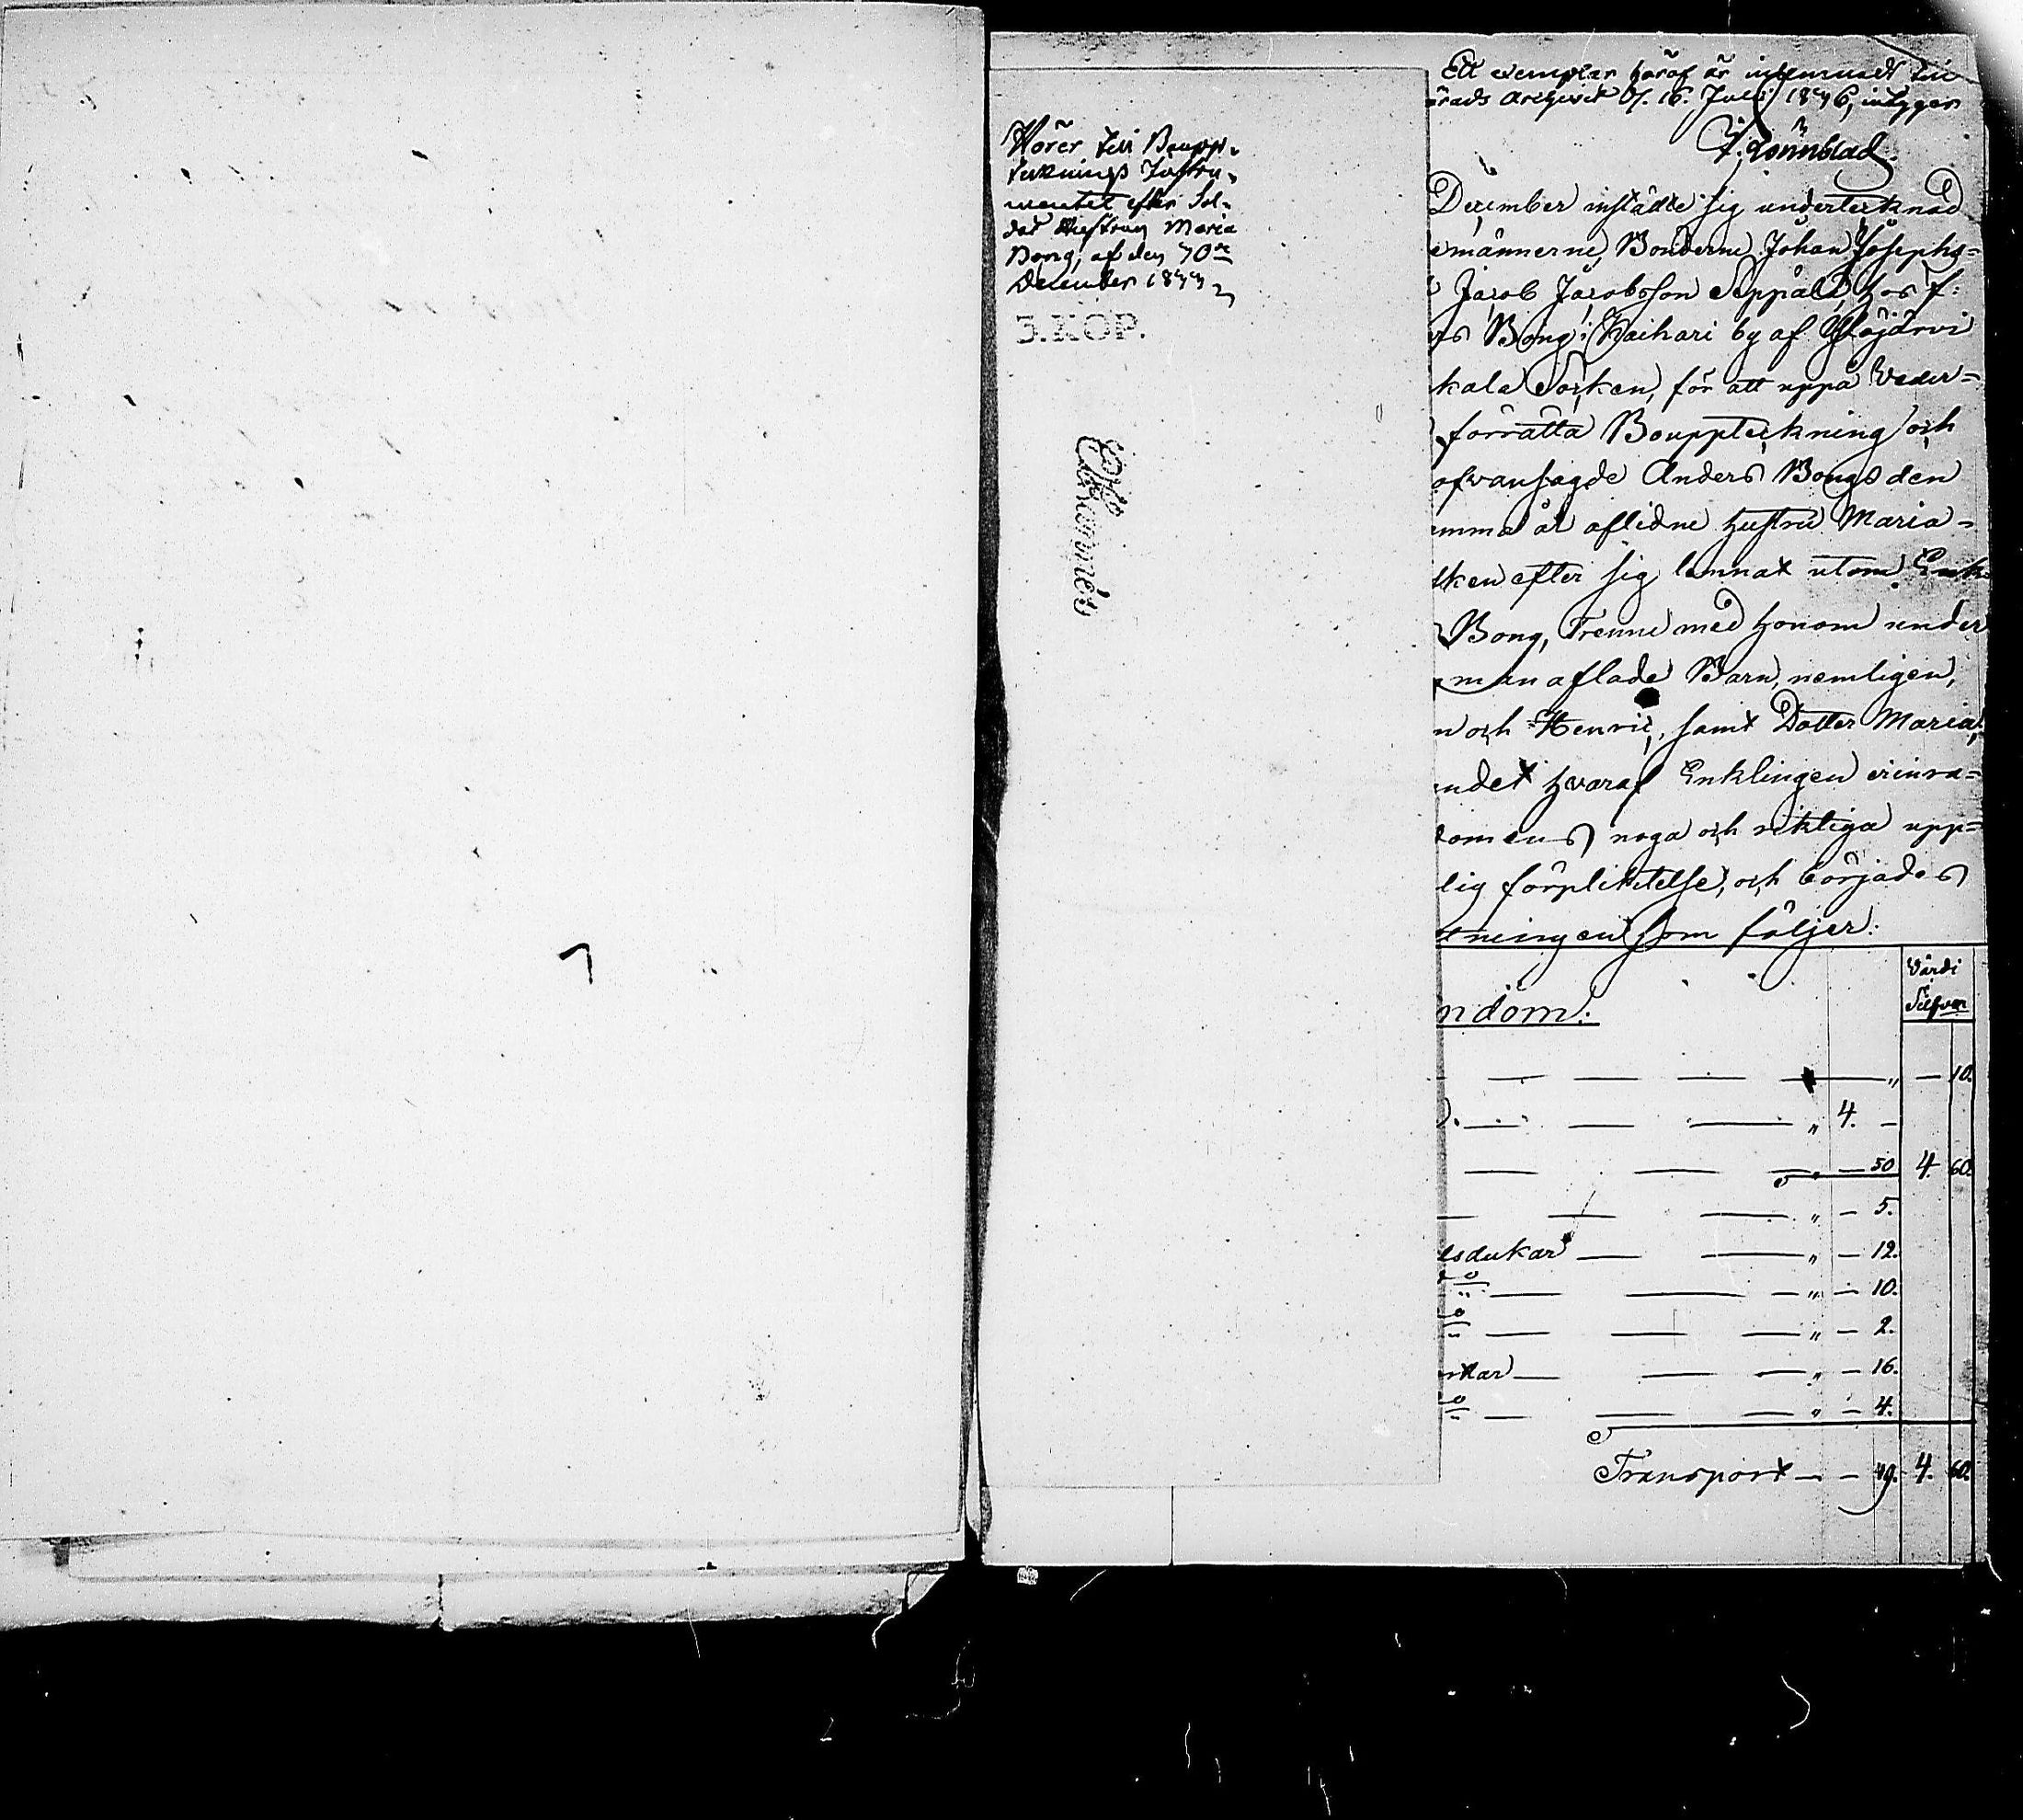 Hörer till Bouppt-
teknings Instru-
mentet efter Sol-
dat Hustrun Maria
Bong, af den 30de
December 1844
3.KOP.
Ett exemplar häraf är inlemnadt till
ärads Archivet d. 16. Juli 1846, intygar
J. Lönnblad
December instälte sig undertecknad
emännerne, Bönderne Johan Josephs=
Jacob Jacobsson Seppälä, hos f:
rs Bong i Kaihari by af Ylöjärvi
kala Socken, för att uppå Veder=
förrätta Bouppteckning och
ofvansagde Anders Bongs den
mma år aflidne hustru Maria =
lken efter sig lemnat utom Enk
Bong, Trenne med honom under
man aflade Barn, nemligen,
n och Henric, samt Dotter Maria,
ndet hvaraf Enklingen erinra=
domens noga och riktiga upp=
lig förpliktelse, och börjades
tningen som följer:
Värdi
Silfver
ndom:
" — 10.
" 4. —
" — 50 4. 60.
" — 5.
lsdukar — " — 12.
do — " — 10.
do — " — 2.
rkar — " — 16.
do — " — 4.
Transport — — 49. 4. 60.